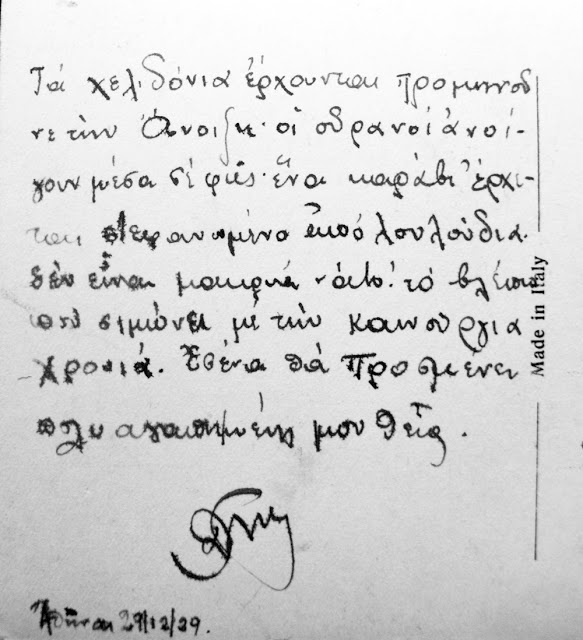 Τά χελιδόνια ἔρχουνται προμηνοῦ
νε τὴν Ἄνοιξη· οἱ οὐρανοί ἀνοί-
γουν μέσα σέ φῶς· ἕνα καράβι ἔρχε-
ται στεφανωμένο ἀπό λουλούδια.
δέν εἶναι μακριά νάτο! τό βλέπω
πού σιμώνει μέ τὴν καινούργια
χρονιά. Ἐσένα θά προσμένει
πολυαγαπημένη μου θεία.
Ἀθῆναι 29/12/39.
Made in Italy